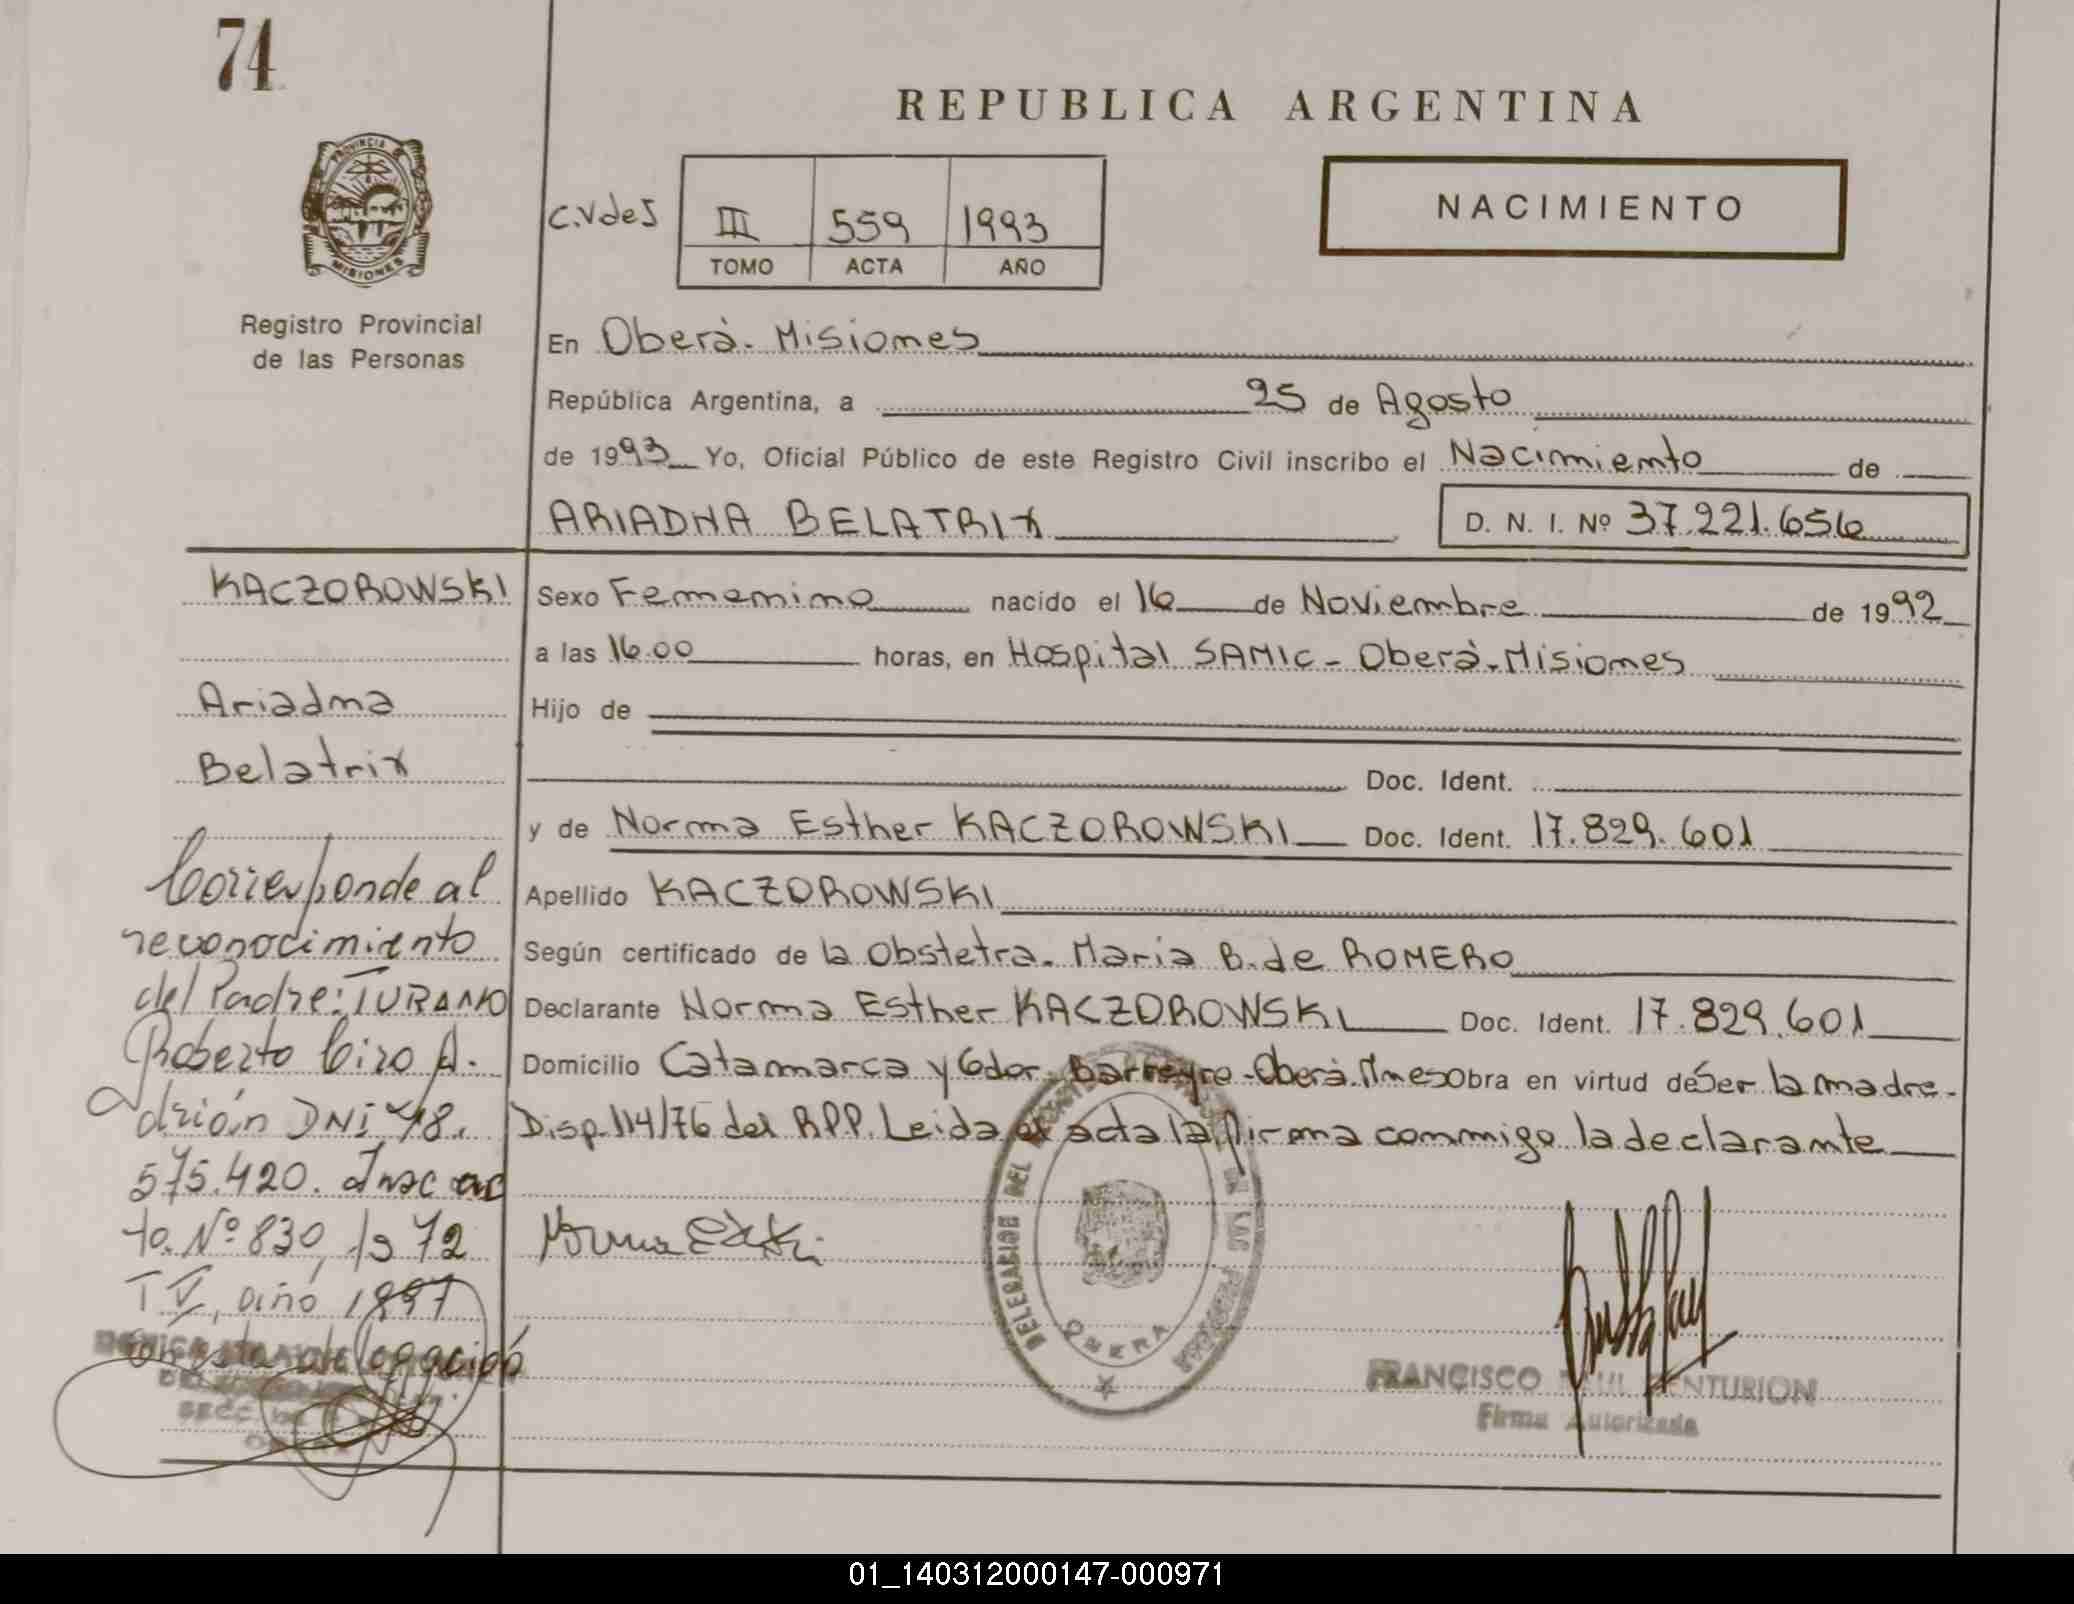 74
REPUBLICA ARGENTINA
PROVINCIA DE
MISIONES
Registro Provincial
de las Personas
C.VdeS
III 559 1993
TOMO ACTA AÑO
NACIMIENTO
En Oberà. Misiones
República Argentina, a 25 de Agosto
de 1993 Yo, Oficial Público de este Registro Civil inscribo el Nacimiento de
ARIADNA BELATRIX D. N. I. Nº 37.221.656
KACZOROWSKI
Ariadna
Belatrix
Corresponde al
reconocimiento
del Padre: TURANO
Roberto Ciro A.
drión DNI 18.
575.420. Insc ac
to. Nº 830, Fs 72
T V, año 1997
en esta delegación
Sexo Femenino nacido el 16 de Noviembre de 1992
a las 16.00 horas, en Hospital SAMIC - Oberà. Misiones
Hijo de
Doc. Ident.
y de Norma Esther KACZOROWSKI Doc. Ident. 17.829.601
Apellido KACZOROWSKI
Según certificado de la Obstetra. Maria B. de ROMERO
Declarante Norma Esther KACZOROWSKI Doc. Ident. 17.829.601
Domicilio Catamarca y Gdor. Barreyro - Oberà. Mnes Obra en virtud de Ser la madre.
Disp. 114/76 del RPP. Leida el acta la firma conmigo la declarante
DELEGACION DEL REGISTRO PROVINCIAL DE LAS PERSONAS
OBERA
FRANCISCO RAUL CENTURION
Firma Autorizada
01_140312000147-000971